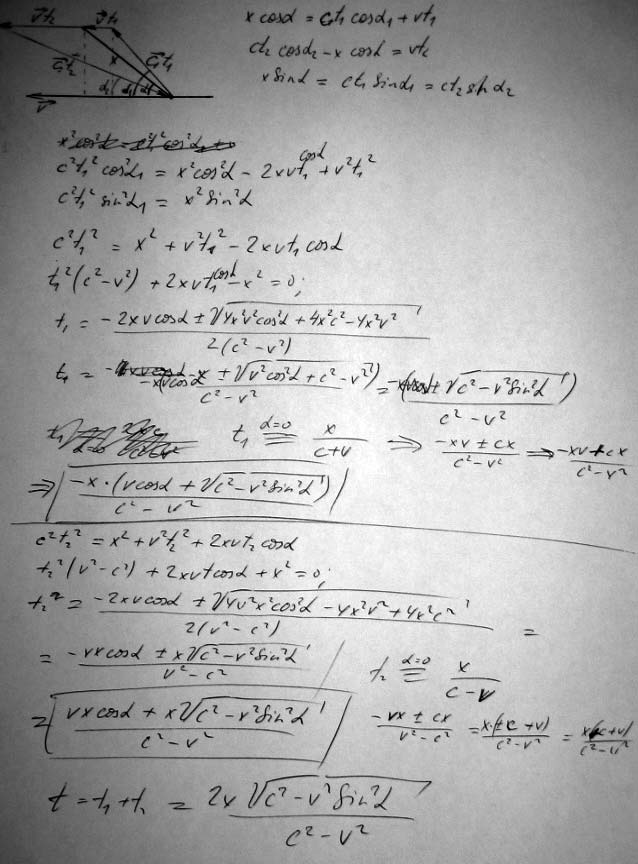 vt₂ vt₁
x cosα = ct₁ cosα₁ + vt₁
ct₂ cosα₂ - x cosα = vt₂
x sinα = ct₁ sinα₁ = ct₂ sin α₂
ct₂ x ct₁
α₂ α₁ α
v
c²t₁² cos²α₁ = x²cos²α - 2xvt₁ cosα + v²t₁²
c²t₁² sin²α₁ = x² sin²α
c²t₁² = x² + v²t₁² - 2xvt₁ cosα
t₁²(c²-v²) + 2xvt₁ cosα - x² = 0;
t₁ = (-2xv cosα ± √(4x²v²cos²α + 4x²c² - 4x²v²)) / 2(c²-v²)
t₁ = (-xv cosα - x ± √(v²cos²α + c² - v²)) / (c²-v²) = -x(v cosα ± √(c² - v² sin²α)) / (c²-v²)
t₁ α=0 ≡ x / (c+v) ⇒ (-xv ± cx) / (c²-v²) ⇒ (-xv + cx) / (c²-v²)
⇒ -x·(v cosα + √(c² - v² sin²α)) / (c² - v²)
c²t₂² = x² + v²t₂² + 2xvt₂ cosα
t₂²(v²-c²) + 2xvt cosα + x² = 0;
t₂ = (-2xv cosα ± √(4v²x²cos²α - 4x²v² + 4x²c²)) / 2(v²-c²) =
= (-vx cosα ± x√(c² - v² sin²α)) / (v²-c²) t₂ α=0 ≡ x / (c-v)
= (vx cosα + x√(c² - v² sin²α)) / (c²-v²) (-vx ± cx) / (v²-c²) = x(±c+v) / (c²-v²) = x(c+v) / (c²-v²)
t = t₁ + t₂ = 2x √(c² - v² sin²α) / (c² - v²)